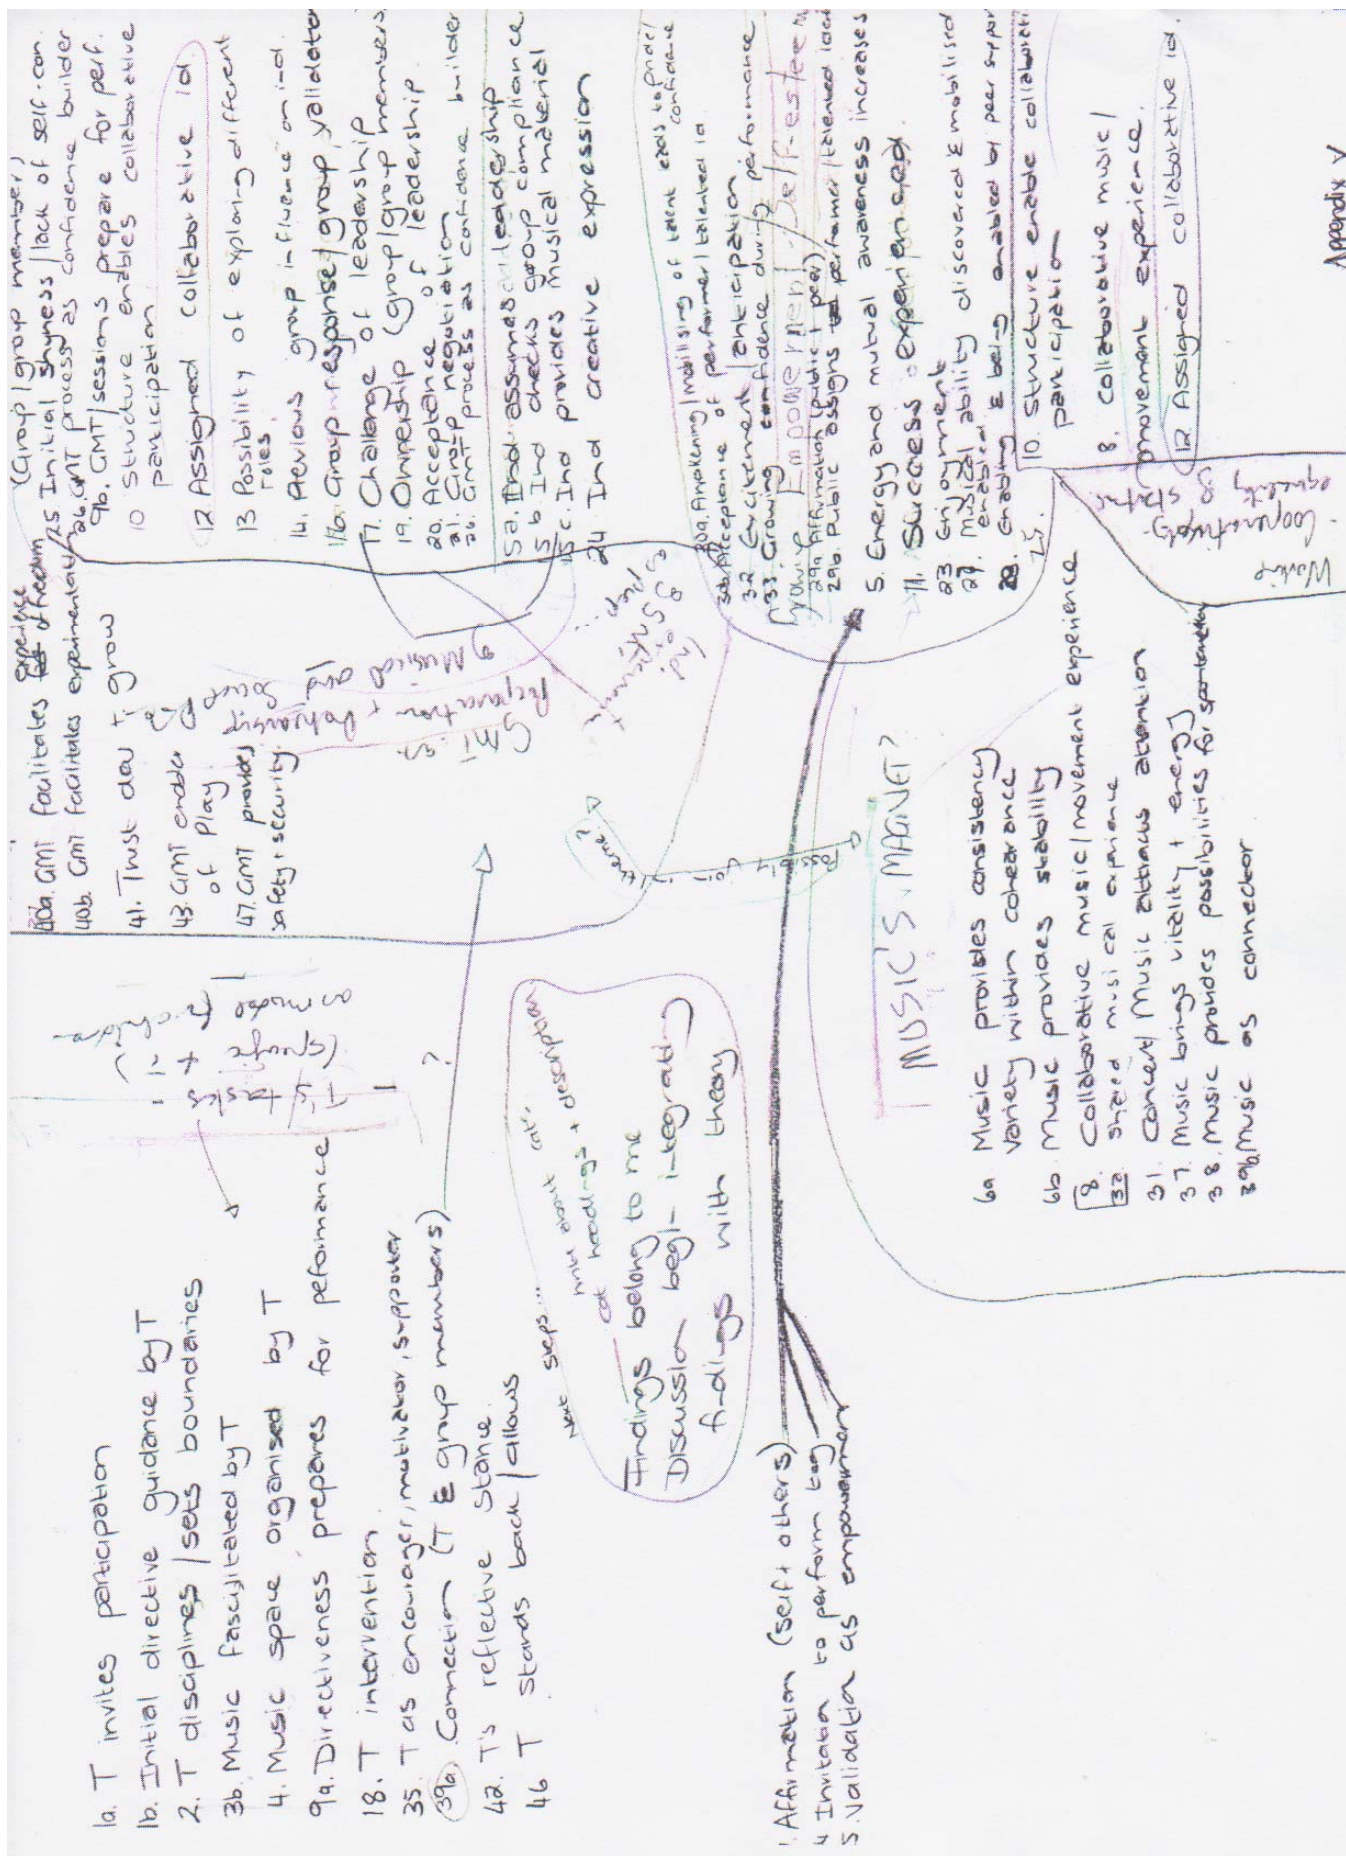 1a. T invites participation
1b. Initial directive guidance by T
2. T disciplines / sets boundaries
3b. Music fascilitated by T
4. Music space organised by T
9a. Directiveness prepares for peformance
18. T intervention
35. T as encourager, motivator, supporter
39a. Connection (T & group members)
42. T's reflective stance
46 T stands back / allows
T's tasks
(specific
as music
?
Next steps....
cat headings + description
Findings belong to me
Discussion begin integrating
findings with theory
1. Affirmation (self + others)
4 Invitation to perform tog
5. Validation as empowerment
40a. GMT facilitates experience of freedom
40b. GMT facilitates experimentation
41. Trust dev + grow
43. GMT
of Play
47. GMT provides
safety + security
Preparation +
& Musical
Theme?
join
Possibly
MUSIC'S MAGNET?
6a Music provides consistency
Variety within cohearance
6b. Music provides stability
8. Collaborative music/movement experience
32. shared musical experience
31. Concert/Music attracts attention
37. Music brings vitality + energy
38. Music provides possibilities for
39b. Music as connector
(Group / group member)
25 Initial shyness / lack of self-con.
26. GMT process as confidence builder
9b. GMT/sessions prepare for perf.
10 Structure enables collaborative
participation
12. Assigned collaborative id
13 Possibility of exploring different
roles
14. Previous group influence on ind.
16. Group response / group validator
17. Challenge of leadership
19. Ownership (group / group members)
20. Acceptance of leadership
21. Group negotiation
26. GMT process as confidence builder
5a. Ind assumes leadership
5b. Ind checks group compliance
5c. Ind provides musical material
24 Ind creative expression
30a. Awakening / mobilising of talent leads to pride/
confidence
30b. Acceptance of performer / talented id
32. Excitement / anticipation
33. Growing confidence during performance
Growing Empowerment / Self-esteem
29a Affirmation (public + peer)
29b. Public assigns performer / talented id
5. Energy and mutual awareness increases
11. Success experienced.
23. Enjoyment
27. Musical ability discovered & mobilised
28. Enabling & being enabled by peer support
10. Structure enable collaborative
participation
8. Collaborative music /
movement experience.
12. Assigned collaborative id
Working
Cooperatively.
equality
Appendix V